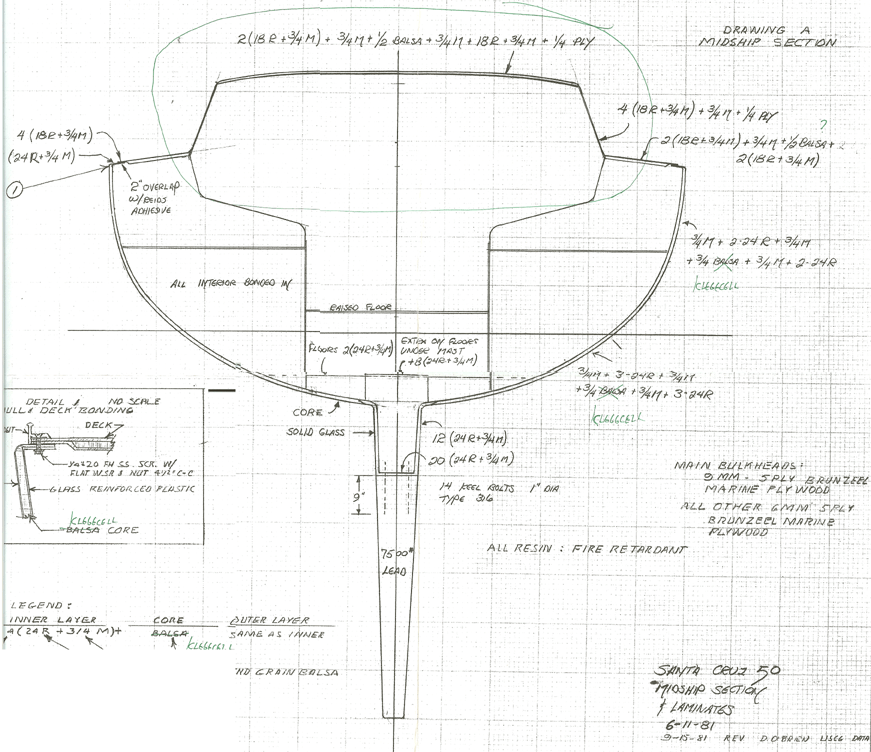 2(18R+3/4M)+3/4M+1/2 BALSA+3/4M+18R+3/4M+1/4 PLY
DRAWING A
MIDSHIP SECTION
4 (18R+3/4M)
(24R+3/4M)
1
2" OVERLAP
W/REIDS
ADHESIVE
4 (18R+3/4M)+3/4M+1/4 PLY
?
2(18R+3/4M)+3/4M+1/2 BALSA+
2(18R+3/4M)
3/4M+2-24R+3/4M
+3/4 BALSA+3/4M+2-24R
KLEGECELL
ALL INTERIOR BONDED W/
RAISED FLOOR
FLOORS 2(24R+3/4M)
FLOORS
UNDER MAST
+8(24R+3/4M)
3/4M+3-24R+3/4M
+3/4 BALSA+3/4M+3-24R
KLEGECELL
CORE
SOLID GLASS
12 (24R+3/4M)
20 (24R+3/4M)
14 KEEL BOLTS 1" DIA
TYPE 316
9"
7500#
LEAD
DETAIL 1 NO SCALE
HULL & DECK BONDING
DECK
FH SS. SCR. W/
FLAT WSR & NUT C-C
GLASS REINFORCED PLASTIC
KLEGECELL
BALSA CORE
MAIN BULKHEADS:
9 MM - 5PLY BRUNZEEL
MARINE PLYWOOD
ALL OTHER 6MM 5PLY
BRUNZEEL MARINE
PLYWOOD
ALL RESIN : FIRE RETARDANT
LEGEND:
INNER LAYER CORE OUTER LAYER
(24R + 3/4 M)+ BALSA SAME AS INNER
KLEGECELL
END GRAIN BALSA
SANTA CRUZ 50
MIDSHIP SECTION
& LAMINATES
6-11-81
9-15-81 REV D.O'BRIEN USCG DATA